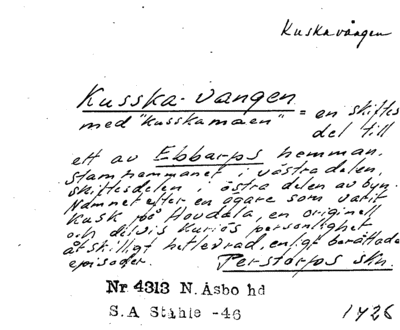 Kuskavången
Kusska-vangen
med "kusskamaen" = en skiftes
del till
ett av Ebbarps hemman.
Stamhemmanet i västra delen,
skiftesdelen i östra delen av byn.
Namnet efter en ägare som varit
kusk på Hovdala, en originell
och delvis kuriös personlighet
åtskilligt hetlevrad, enligt berättade
episoder. Perstorps skn.
Nr 4313 N. Åsbo hd
S.A Ståhle -46 1926